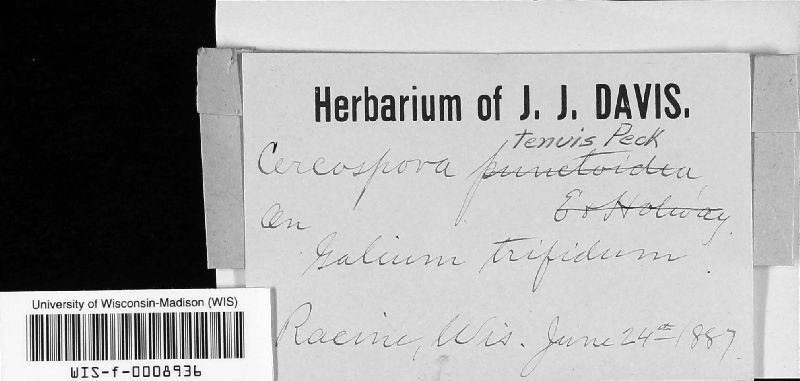 Herbarium of J. J. DAVIS.
tenuis Peck
Cercospora punctoidea
E & Holway.
On
Galium trifidum.
Racine, Wis. June 24th 1887.
University of Wisconsin-Madison (WIS)
WIS-f-0008936